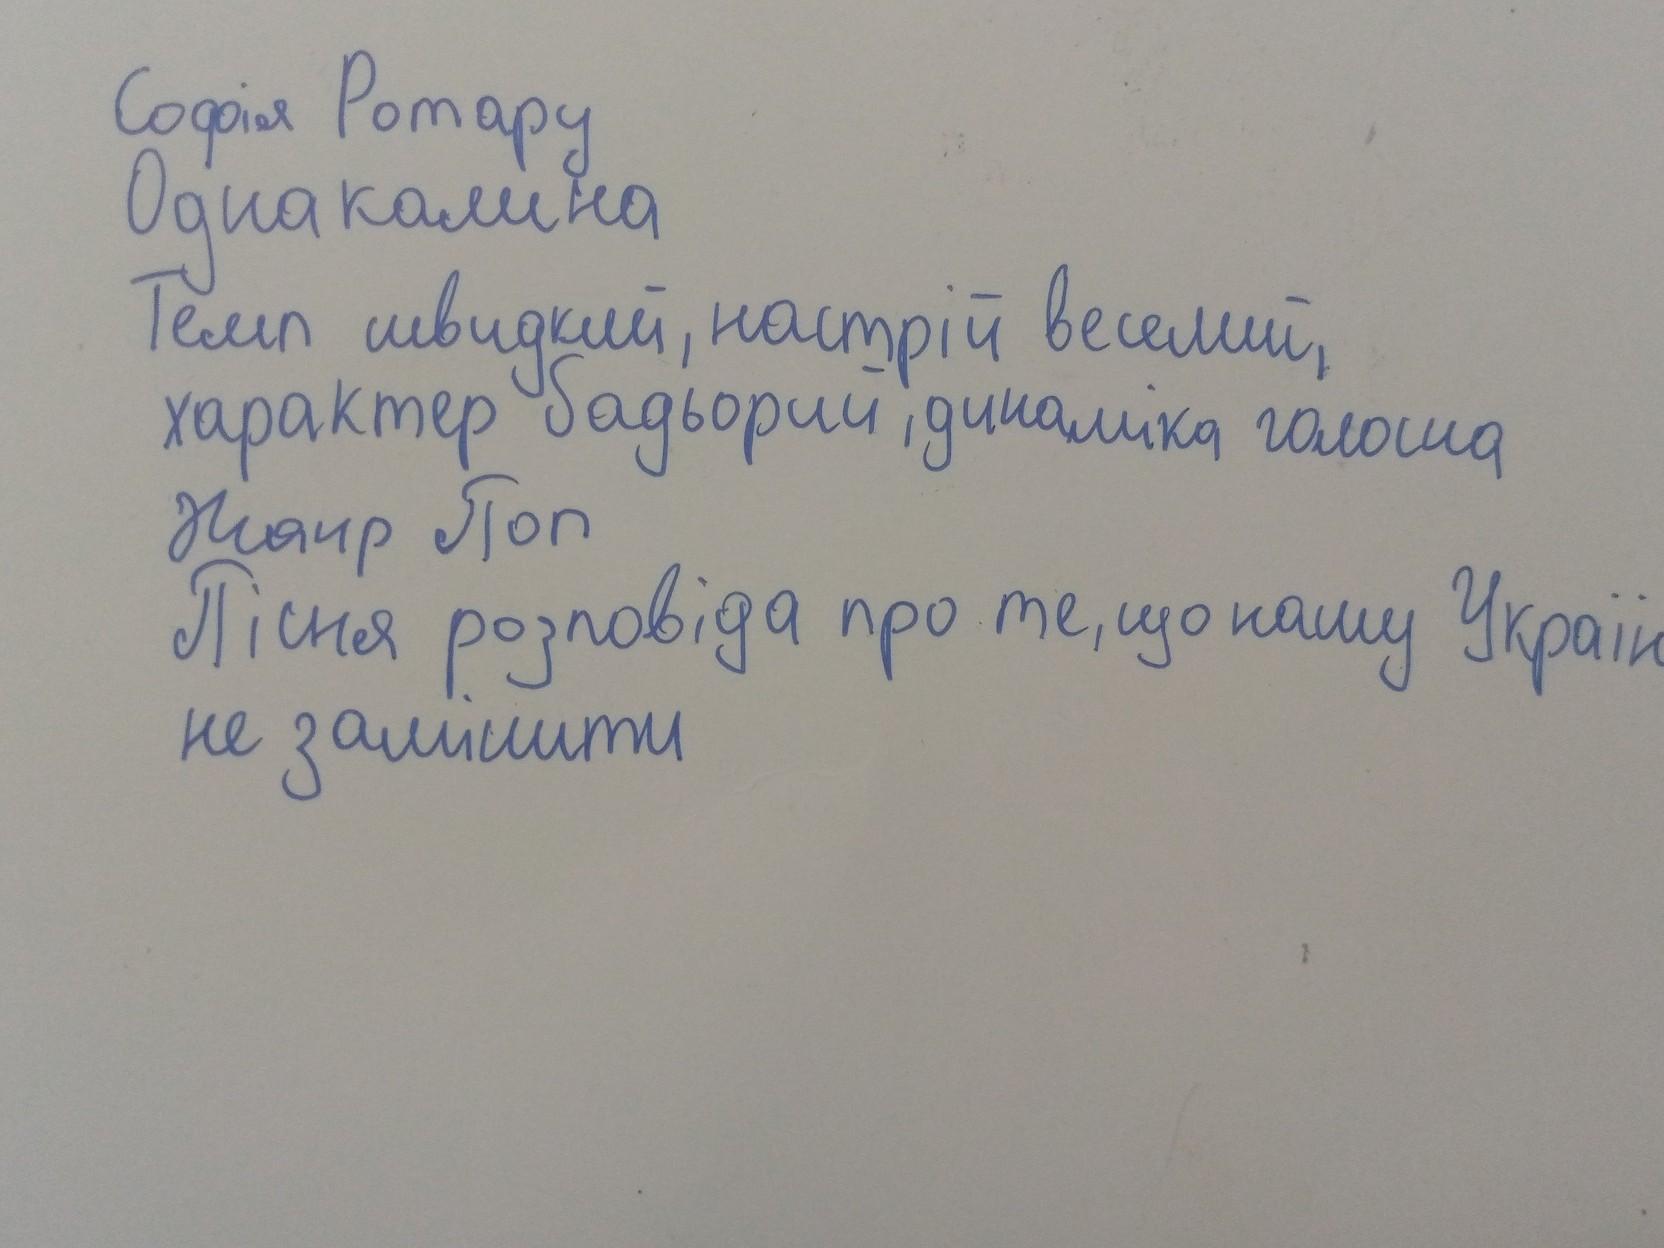 Софія Ротару
Одна калина
Темп швидкий, настрій веселий,
характер бадьорий, динаміка голосна
Жанр Поп
Пісня розповіда про те, що нашу Україн
не замінити